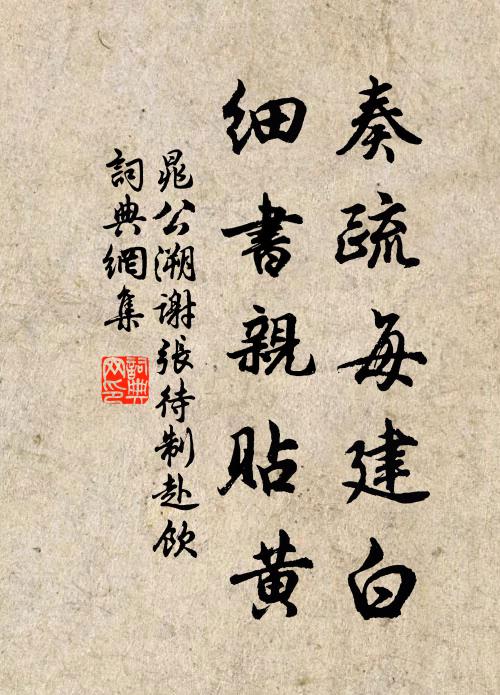 奏疏每建白
細書親貼黄
晁公溯謝張待制赴飲
詞典網集
詞典
网印